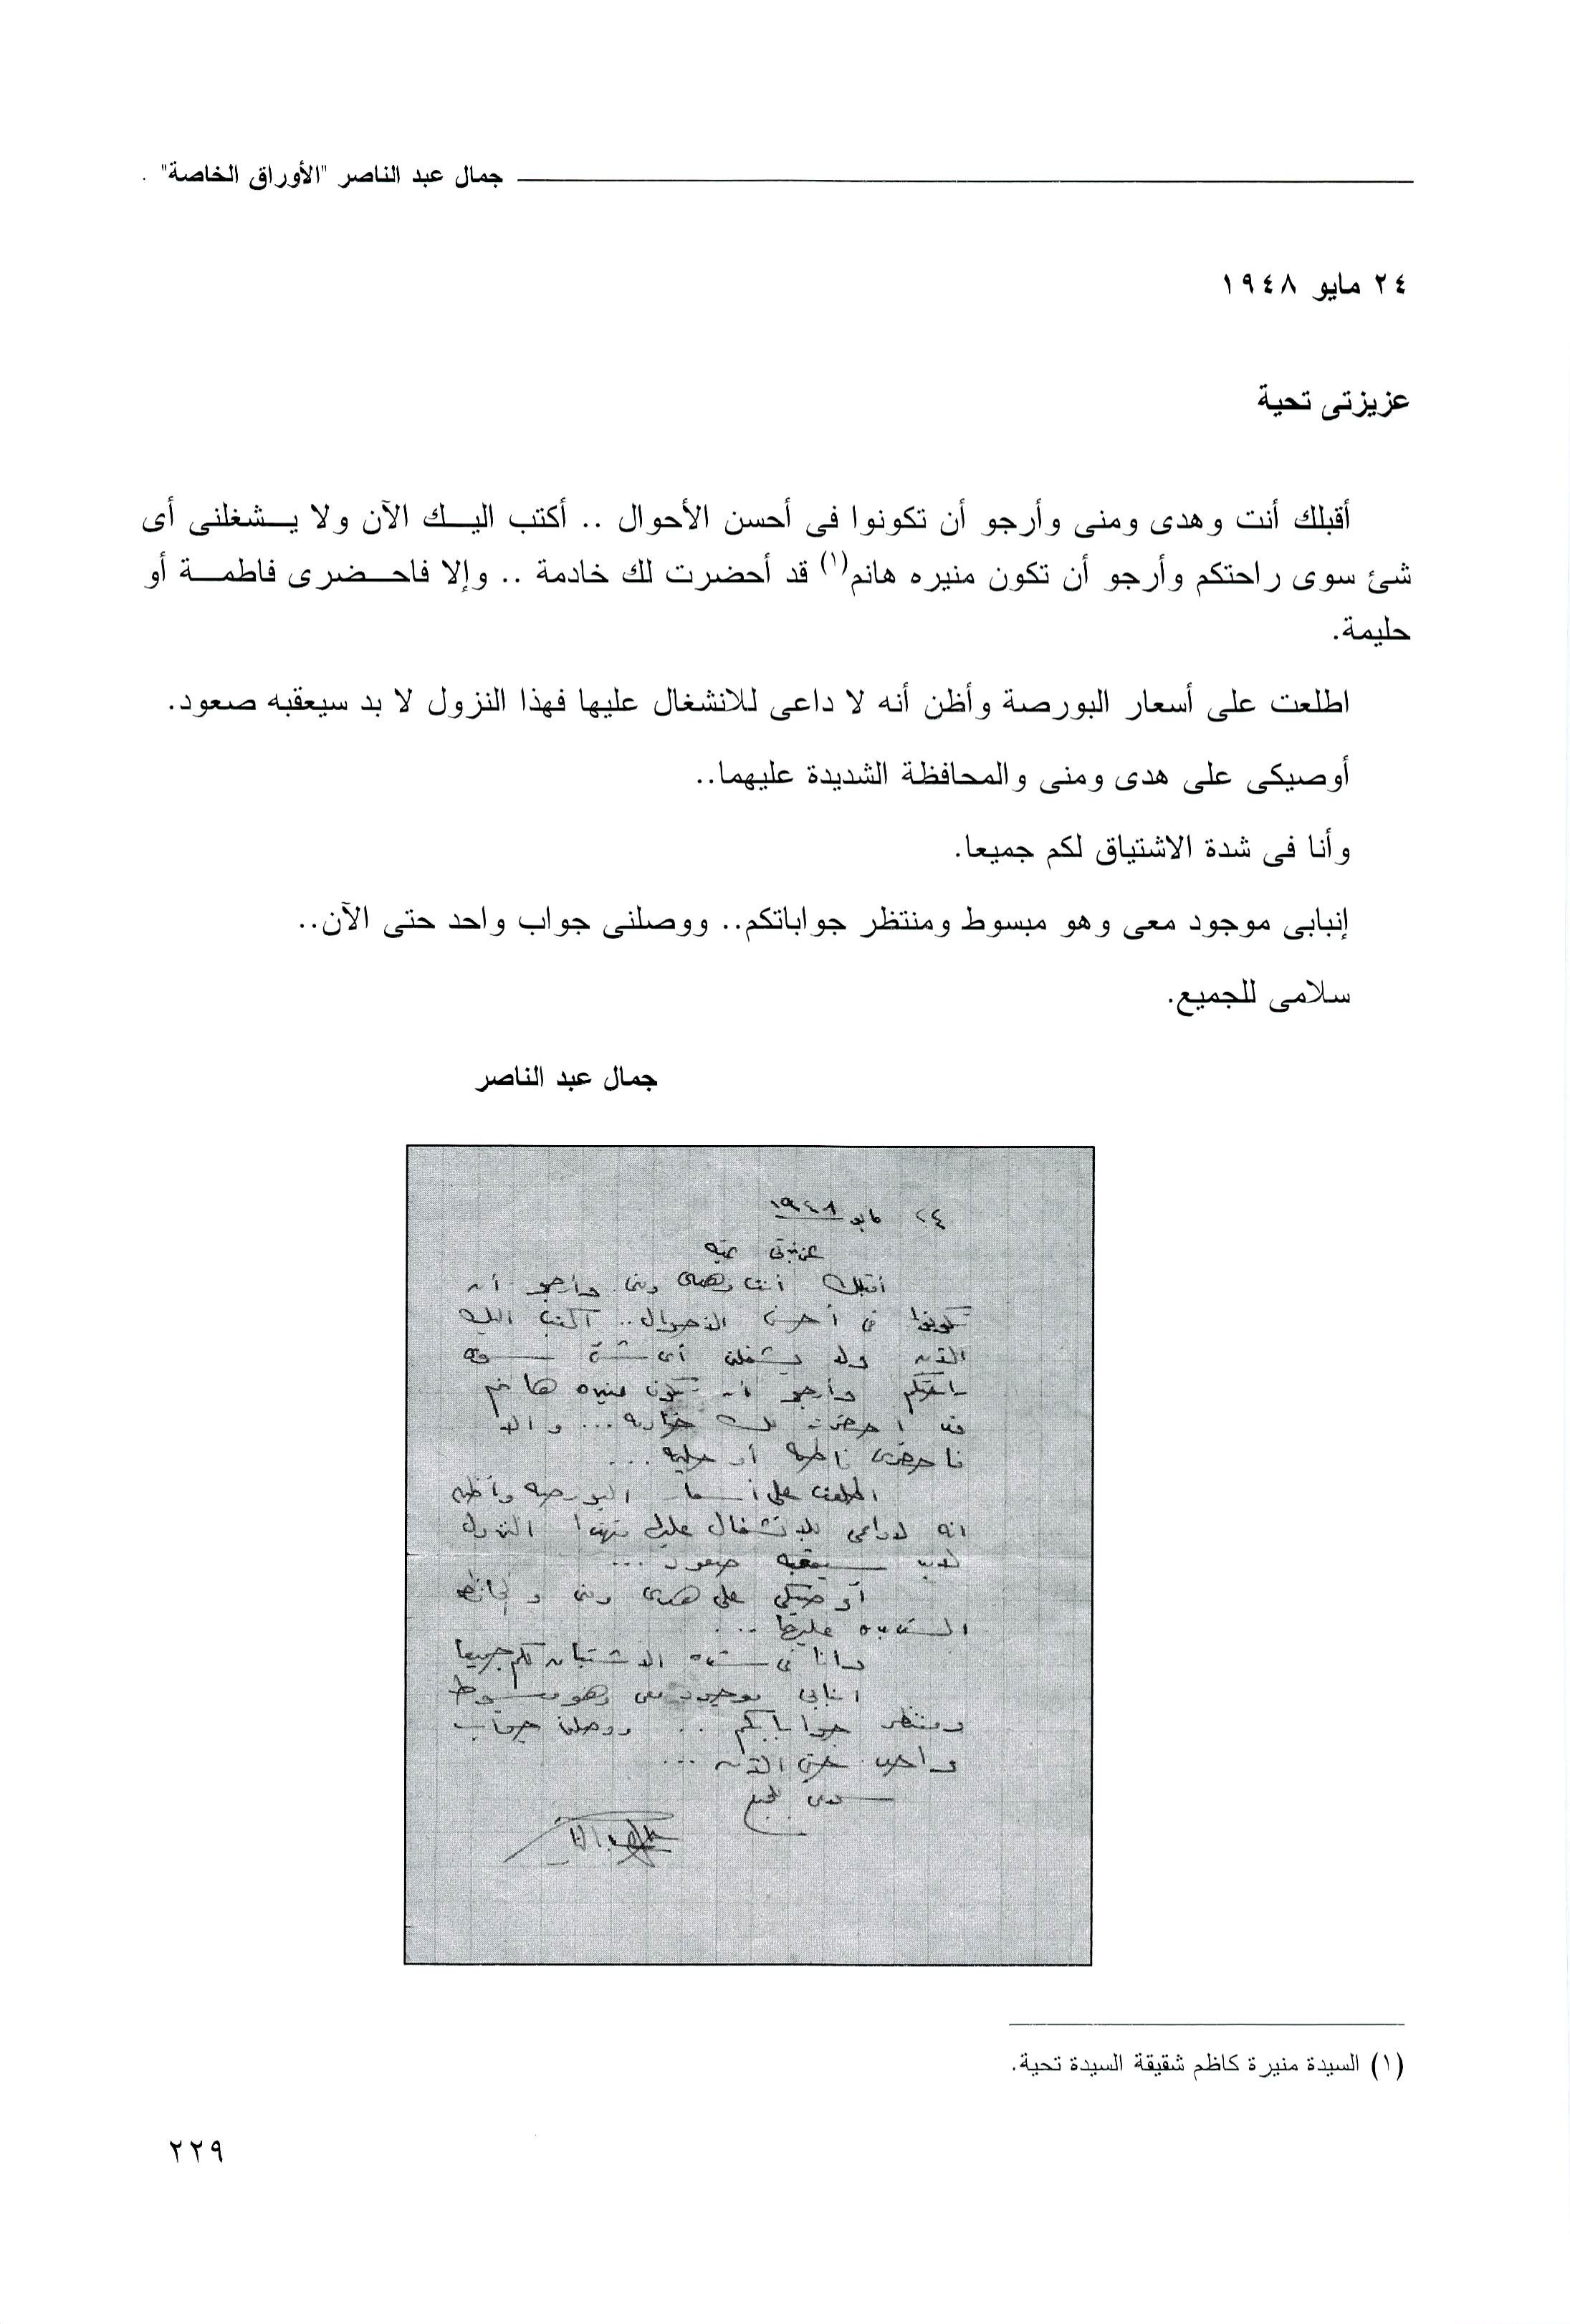 جمال عبد الناصر "الأوراق الخاصة"
٢٤ مايو ١٩٤٨
عزيزتى تحية
أقبلك أنت وهدى ومنى وأرجو أن تكونوا فى أحسن الأحوال .. أكتب اليك الآن ولا يشغلنى أى
شئ سوى راحتكم وأرجو أن تكون منيره هانم(١) قد أحضرت لك خادمة .. وإلا فاحضرى فاطمة أو
حليمة.
اطلعت على أسعار البورصة وأظن أنه لا داعى للانشغال عليها فهذا النزول لا بد سيعقبه صعود.
أوصيكى على هدى ومنى والمحافظة الشديدة عليهما..
وأنا فى شدة الاشتياق لكم جميعا.
إنبابى موجود معى وهو مبسوط ومنتظر جواباتكم.. ووصلنى جواب واحد حتى الآن..
سلامى للجميع.
جمال عبد الناصر
٢٤ مايو ١٩٤٨
عزيزتى تحيه
أقبلك أنت وهدى ومنى وأرجو أن
تكونوا فى أحسن الأحوال .. اكتب اليك
الآن ولا يشغلنى أى شئ سوى
راحتكم وأرجو أن تكون منيره هانم
قد أحضرت لك خادمه ... والا
فاحضرى فاطمه أو حليمه ...
اطلعت على أسعار البورصه وأظن
انه لا داعى للانشغال عليها فهذا النزول
لابد سيعقبه صعود ...
أوصيكى على هدى ومنى والمحافظه
الشديده عليهما ...
وانا فى شدة الاشتياق لكم جميعا
انبابى موجود معى وهو مبسوط
ومنتظر جواباتكم .. ووصلنى جواب
واحد حتى الآن ...
سلامى للجميع
(١) السيدة منيرة كاظم شقيقة السيدة تحية.
٢٢٩